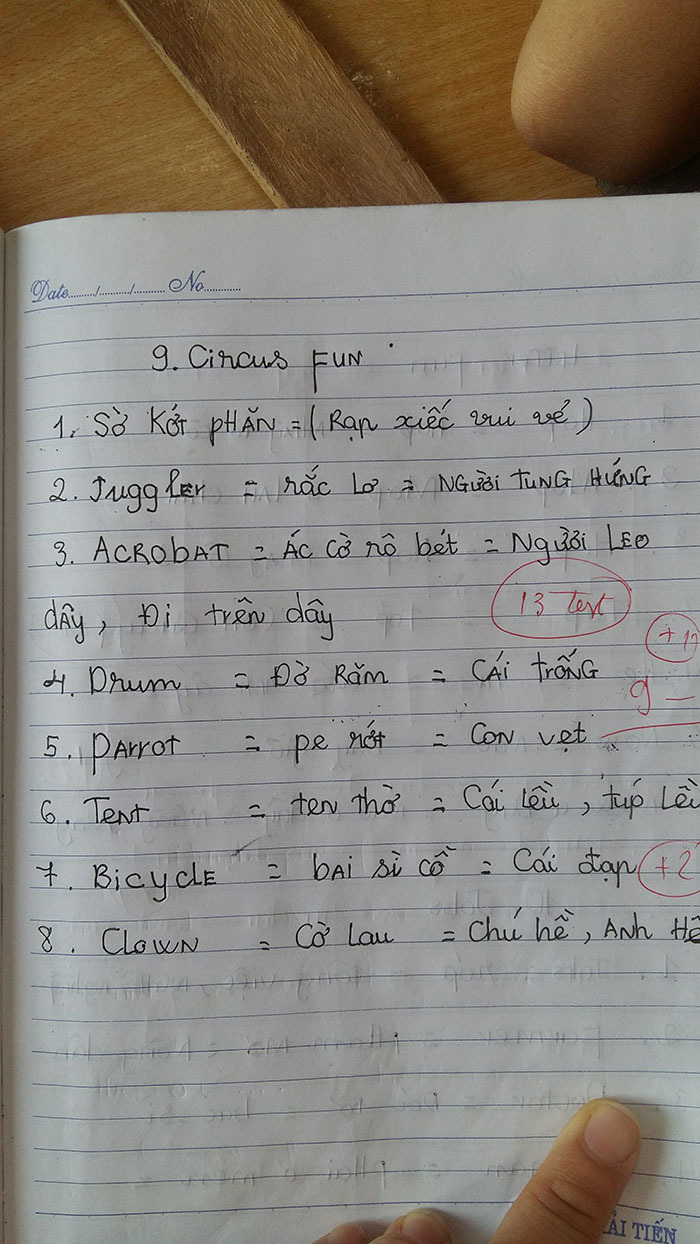 Date......../......../........ No...........
9. Circus FUN
1. Sờ Kớt pHĂN = ( Rạp xiếc vui vẻ )
2. Juggler = rắc Lơ = NGười TUNG HỨNG
3. ACRObAT = Ác cờ rô bét = Người LEO
dÂy, Đi trên dây
13 test
4. Drum = Đờ Răm = CÁi TRỐNG
9
5. PARROT = pe rớt = CON vẹt
6. TENT = ten thờ = Cái lều , túp lều
7. BicycLE = bAi sì cồ = Cái đạp
+2
8. CLOWN = Cờ Lau = Chú hề , ANH HỀ
ẢI TIẾN